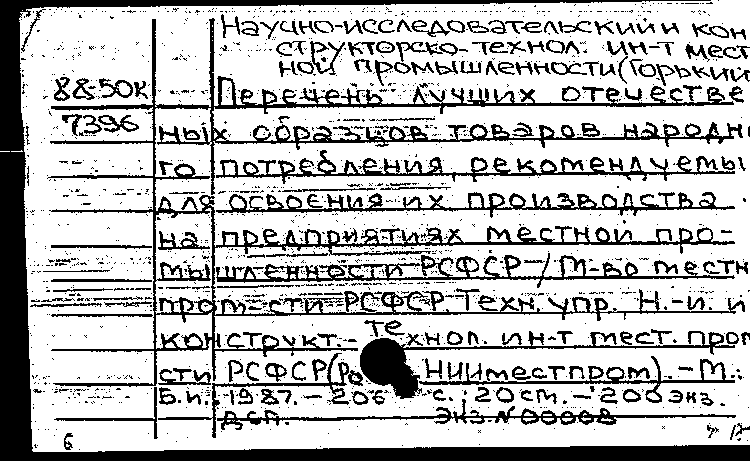 Научно-исследовательский и кон
структорско-технол. ин-т мест
ной промышленности (Горький
88-50К Перечень лучших отечестве
7396 ных образцов товаров народн
го потребления, рекомендуемы
для освоения их производства
на предприятиях местной про-
мышленности РСФСР / М-во местн
пром-сти РСФСР. Техн. упр., Н.-и. и
конструкт.-технол. ин-т мест. пром
сти РСФСР НИИместпром). - М.:
Б.и., 1987. - 206 с.; 20 см. - 200 экз.
ДСП. Экз. N 00008
6